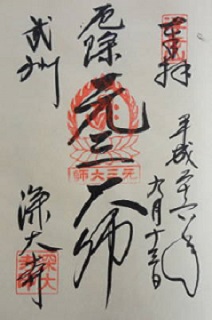 奉拝
平成二十六年
九月十三日
厄除
元三大師
元三大師
武州
深大寺